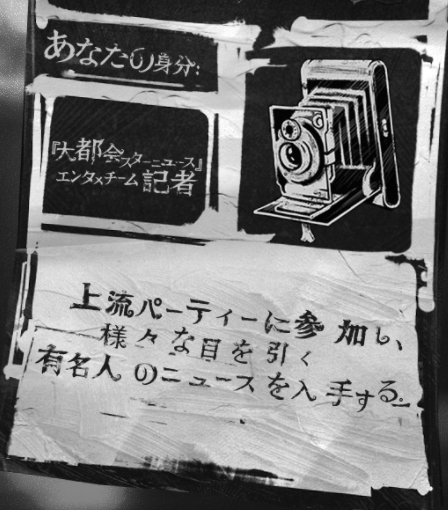 あなたの身分:
『大都会スターニュース』
エンタメチーム記者
上流パーティーに参加し、
様々な目を引く
有名人のニュースを入手する。